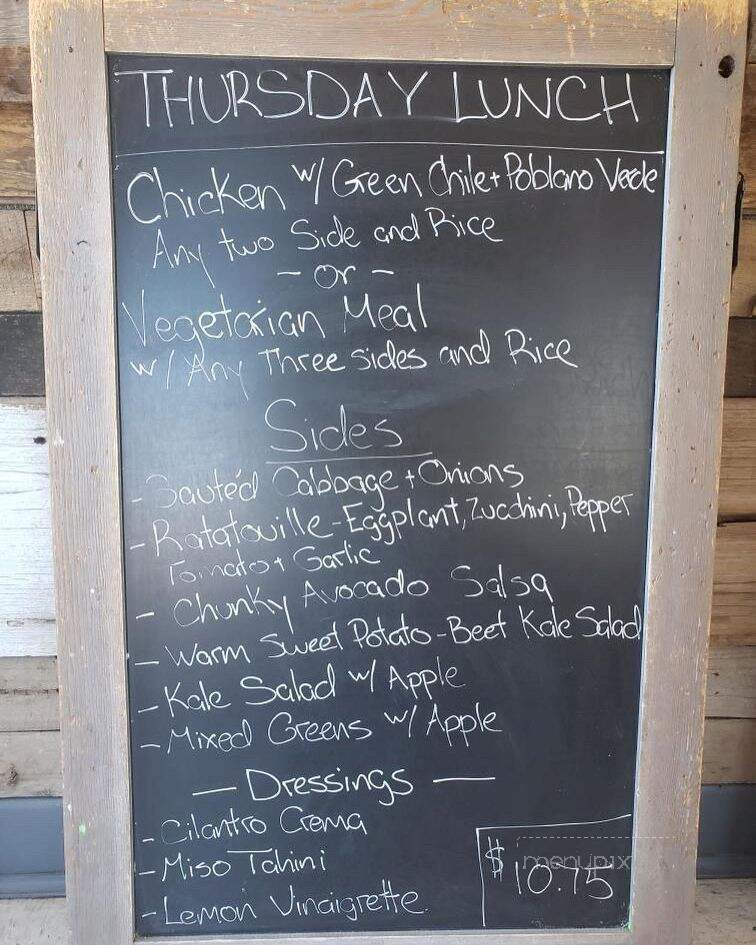 THURSDAY LUNCH
Chicken w/ Green Chile + Poblano Verde
Any two Side and Rice
- or -
Vegetarian Meal
w/ Any Three sides and Rice
Sides
- Sauté'd Cabbage + Onions
- Ratatouille - Eggplant, Zucchini, Pepper
Tomato + Garlic
- Chunky Avocado Salsa
- Warm Sweet Potato - Beet Kale Salad
- Kale Salad w/ Apple
- Mixed Greens w/ Apple
— Dressings —
- Cilantro Crema
- Miso Tahini
- Lemon Vinaigrette
$10.75
menupix